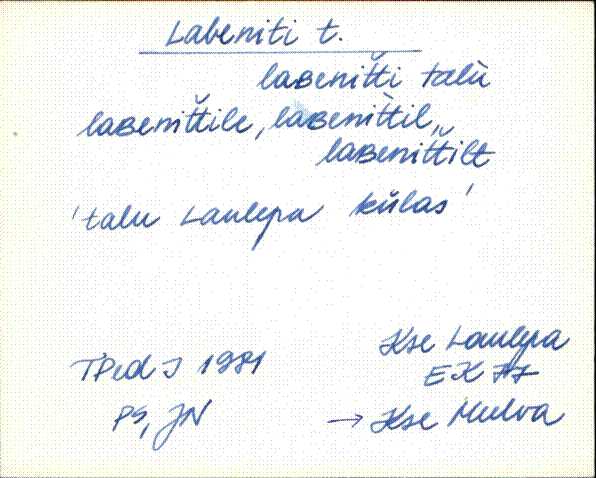 Labeniti t.
laʙenitti talù
laʙenittile, laʙenittil,
laʙenittilt
'talu Laulepa külas'
TPedI 1981
Kse Laulepa
EK 77
PS, JN
→ Kse Mulva